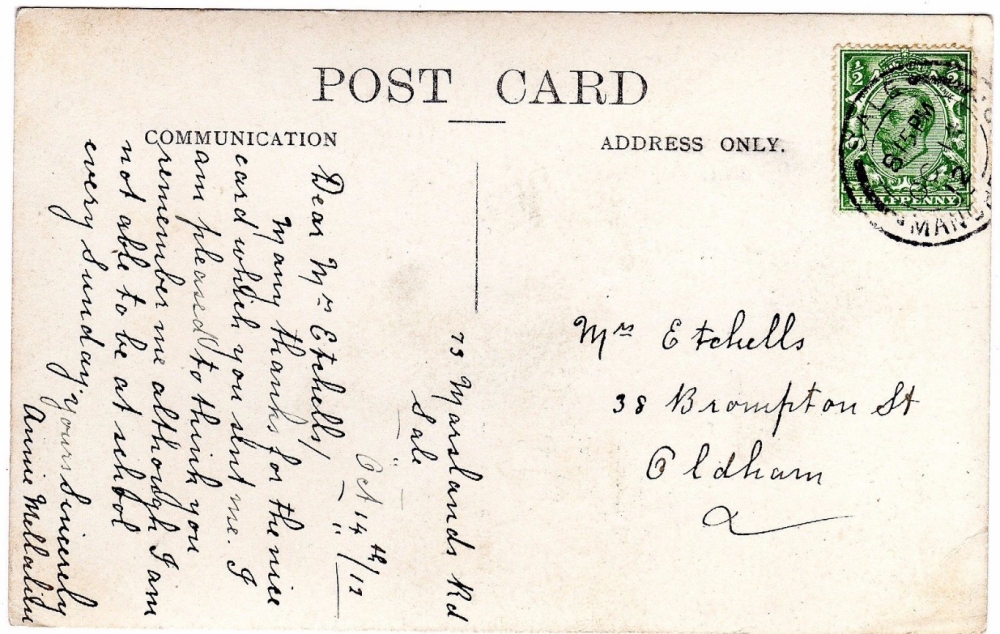 POST CARD
COMMUNICATION
ADDRESS ONLY.
½ ½
HALFPENNY
SALE
8.15 PM
12
MANCH
73 Marslands Rd
Sale
Oct 14th/12
Dear Mrs Etchells,
Many thanks for the nice
card which you sent me. I
am pleased to think you
remember me although I am
not able to be at school
every Sunday. yours sincerely
Annie
Mrs Etchells
38 Brompton St
Oldham